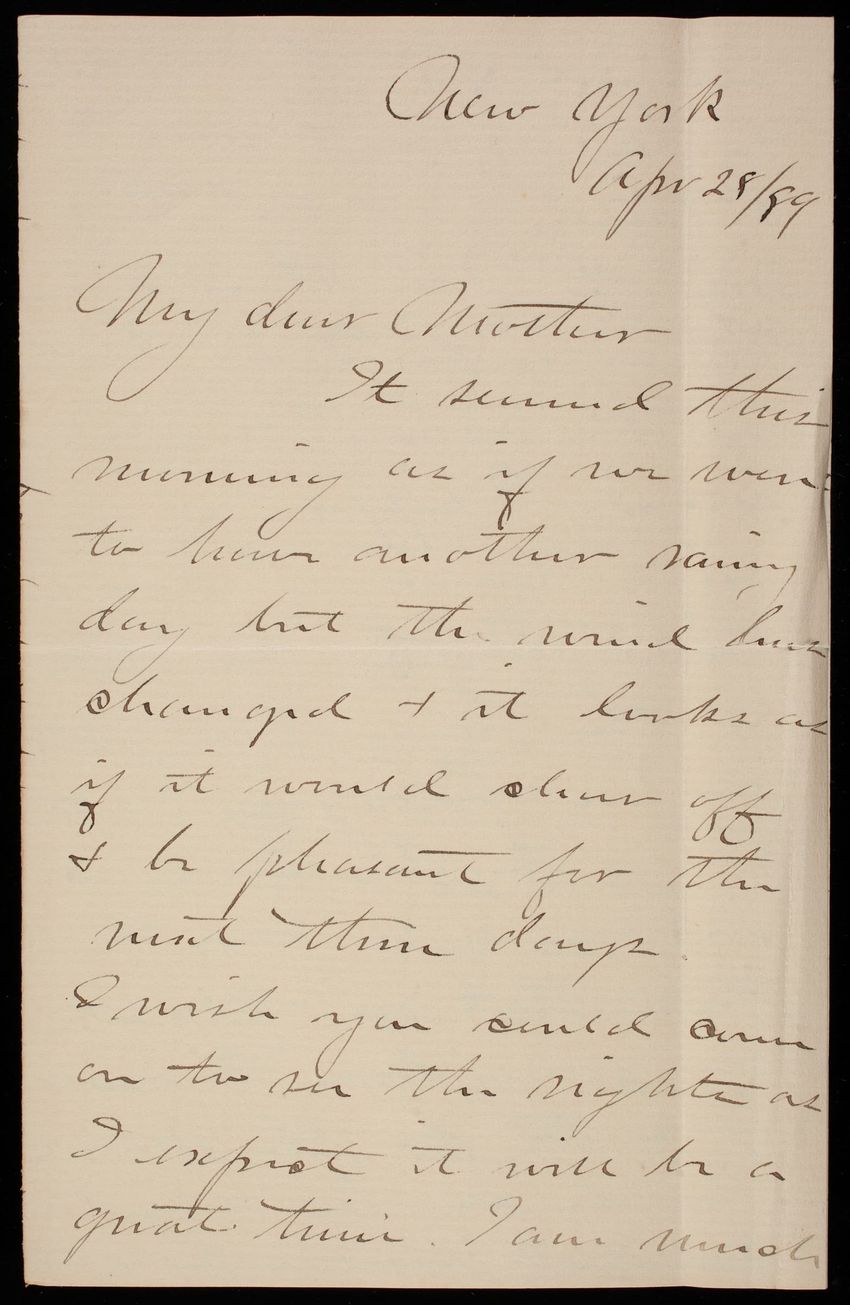 New York
Apr 28/89
My dear Mother
It seemed this
morning as if we were
to have another rainy
day but the wind has
changed & it looks as
if it would clear off
& be pleasant for the
next three days.
I wish you could come
on to see the sights as
I expect it will be a
great time. I am much